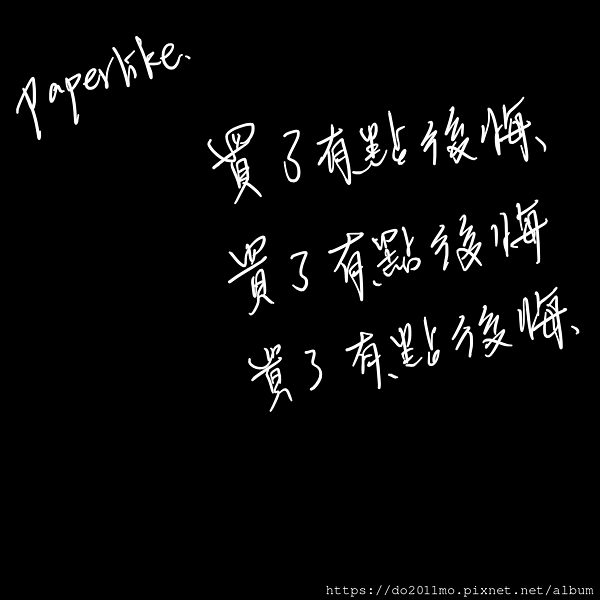 Paperlike.
買了有點後悔、
買了有點後悔
買了有點後悔、
https://do2011mo.pixnet.net/album